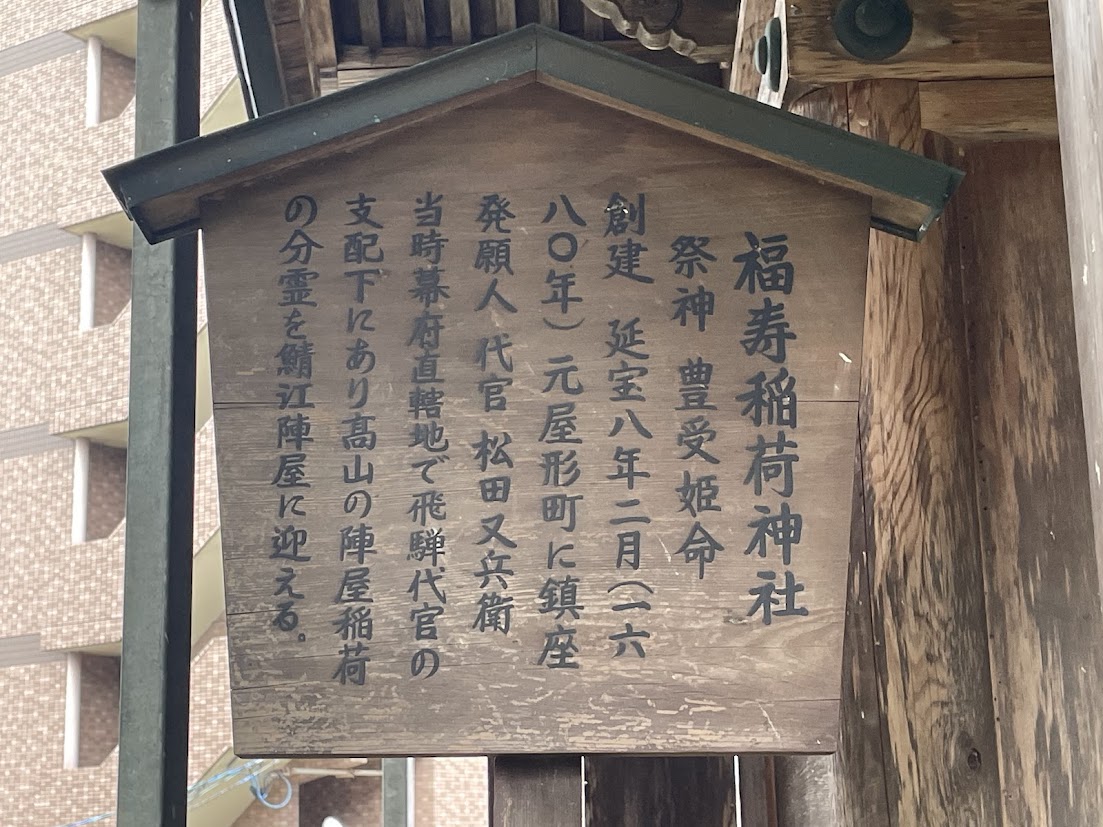 福寿稲荷神社
祭神 豊受姫命
創建 延宝八年二月(一六
八〇年)元屋形町に鎮座
発願人 代官 松田又兵衛
当時幕府直轄地で飛騨代官の
支配下にあり髙山の陣屋稲荷
の分霊を鯖江陣屋に迎える。